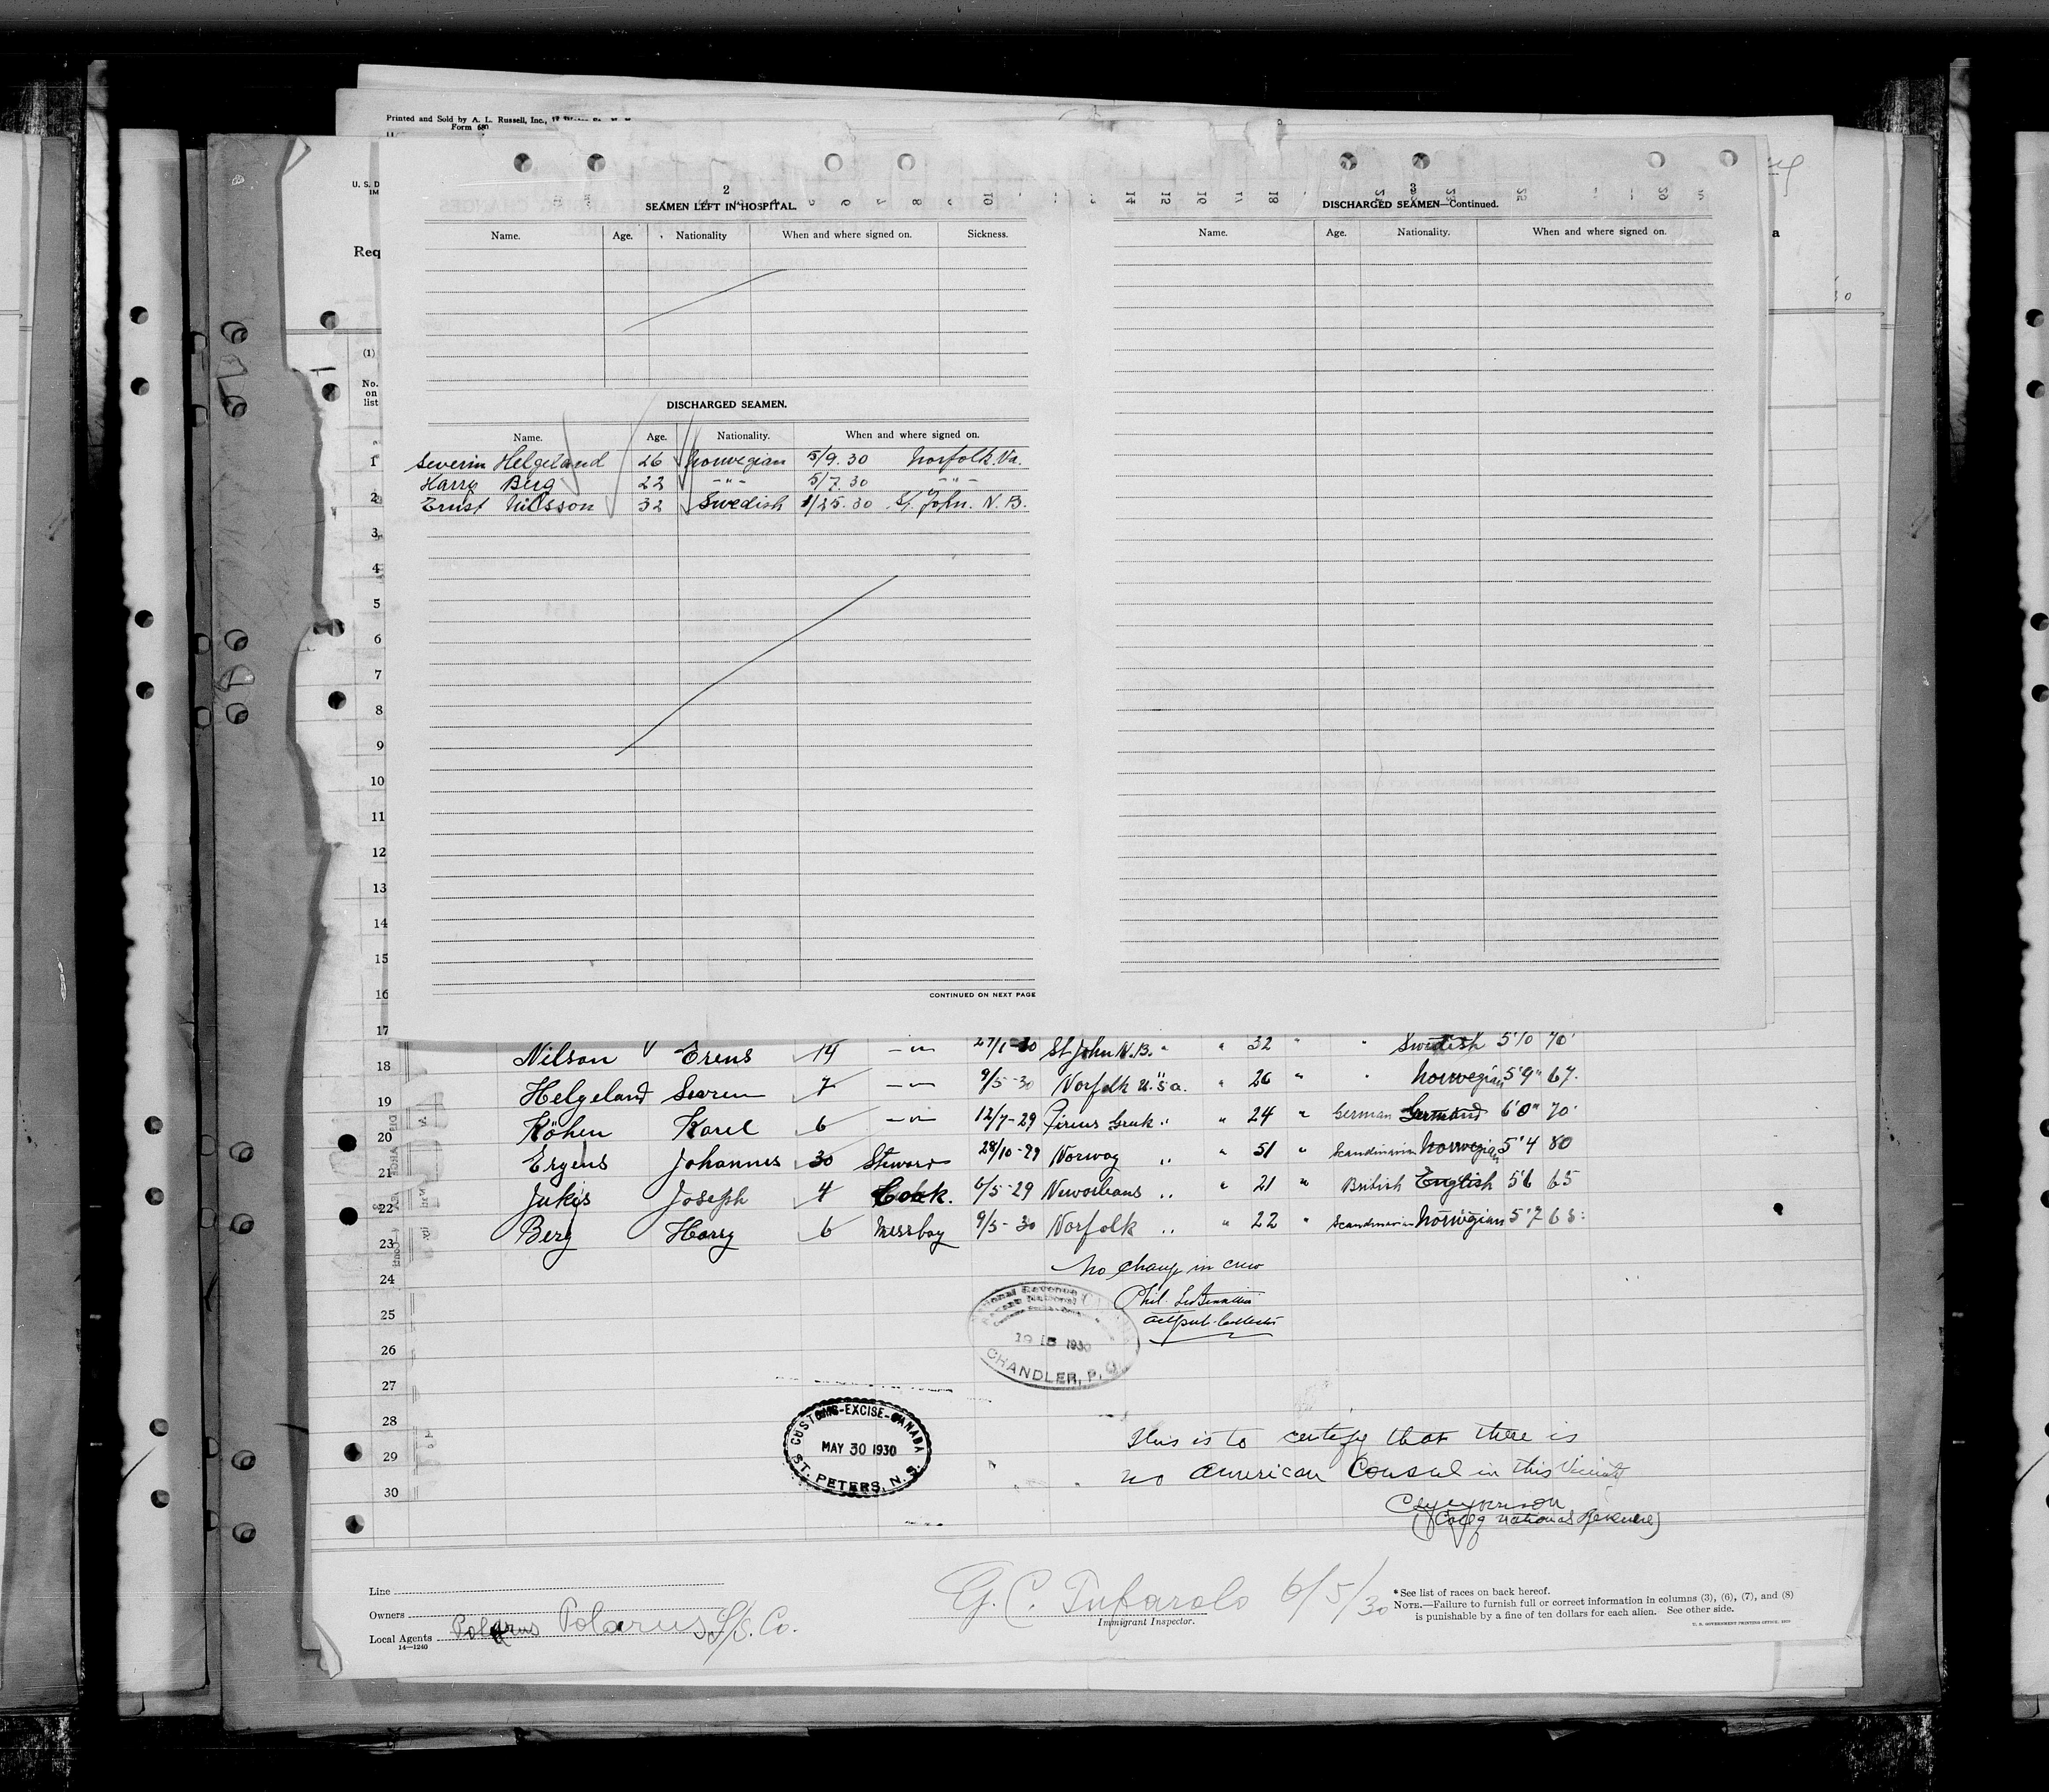 Printed and Sold by A. L. Russell, Inc.,
Form 680
U. S. D
IM
Req
a
(1)
No.
on
list
2
SEAMEN LEFT IN HOSPITAL.
Name. Age. Nationality When and where signed on. Sickness.
DISCHARGED SEAMEN.
Name. Age. Nationality. When and where signed on.
Severin Helgeland 26 Norwegian 5/9.30 Norfolk.Va.
Harry Berg 22 -"- 5/7.30 -"-
Ernst Nilsson 32 Swedish 1/25.30 St. John. N.B.
CONTINUED ON NEXT PAGE
3
DISCHARGED SEAMEN—Continued.
Name. Age. Nationality. When and where signed on.
1
2
3
4
5
6
7
8
9
10
11
12
13
14
15
16
17
18 Nilson Erens 14 -"- 27/1-30 St John N.B. " " 32 " " Swedish 5'10 70
19 Helgeland Severen 7 -"- 9/5-30 Norfolk U.S.a. " 26 " " Norwegian 5'9" 67.
20 Köhen Karel 6 -"- 12/7-29 Pireus Greek " " 24 " German 6'0" 70
21 Johannes 30 Steward 28/10-29 Norway " " 51 " Scandinavian Norwegian 5'4 80
22 Jukes Joseph 4 Cook. 6/5-29 Neworleans " " 21 " British English 5'6 65
23 Berg Harry 6 Messboy 9/5-30 Norfolk " " 22 " Scandinavian Norwegian 5'7 68
24 No change in crew
25
26
27
28
29
30
1930
CHANDLER, P. Q.
CUSTOMS-EXCISE-CANADA
MAY 30 1930
ST. PETERS, N. S.
This is to certify that there is
no American Consul in this Vicinity
Line
Owners
Local Agents Polarus Polarus S/S. Co.
14—1240
G. C. Tufarolo 6/5/30
Immigrant Inspector.
*See list of races on back hereof.
NOTE.—Failure to furnish full or correct information in columns (3), (6), (7), and (8)
is punishable by a fine of ten dollars for each alien. See other side.
U. S. GOVERNMENT PRINTING OFFICE